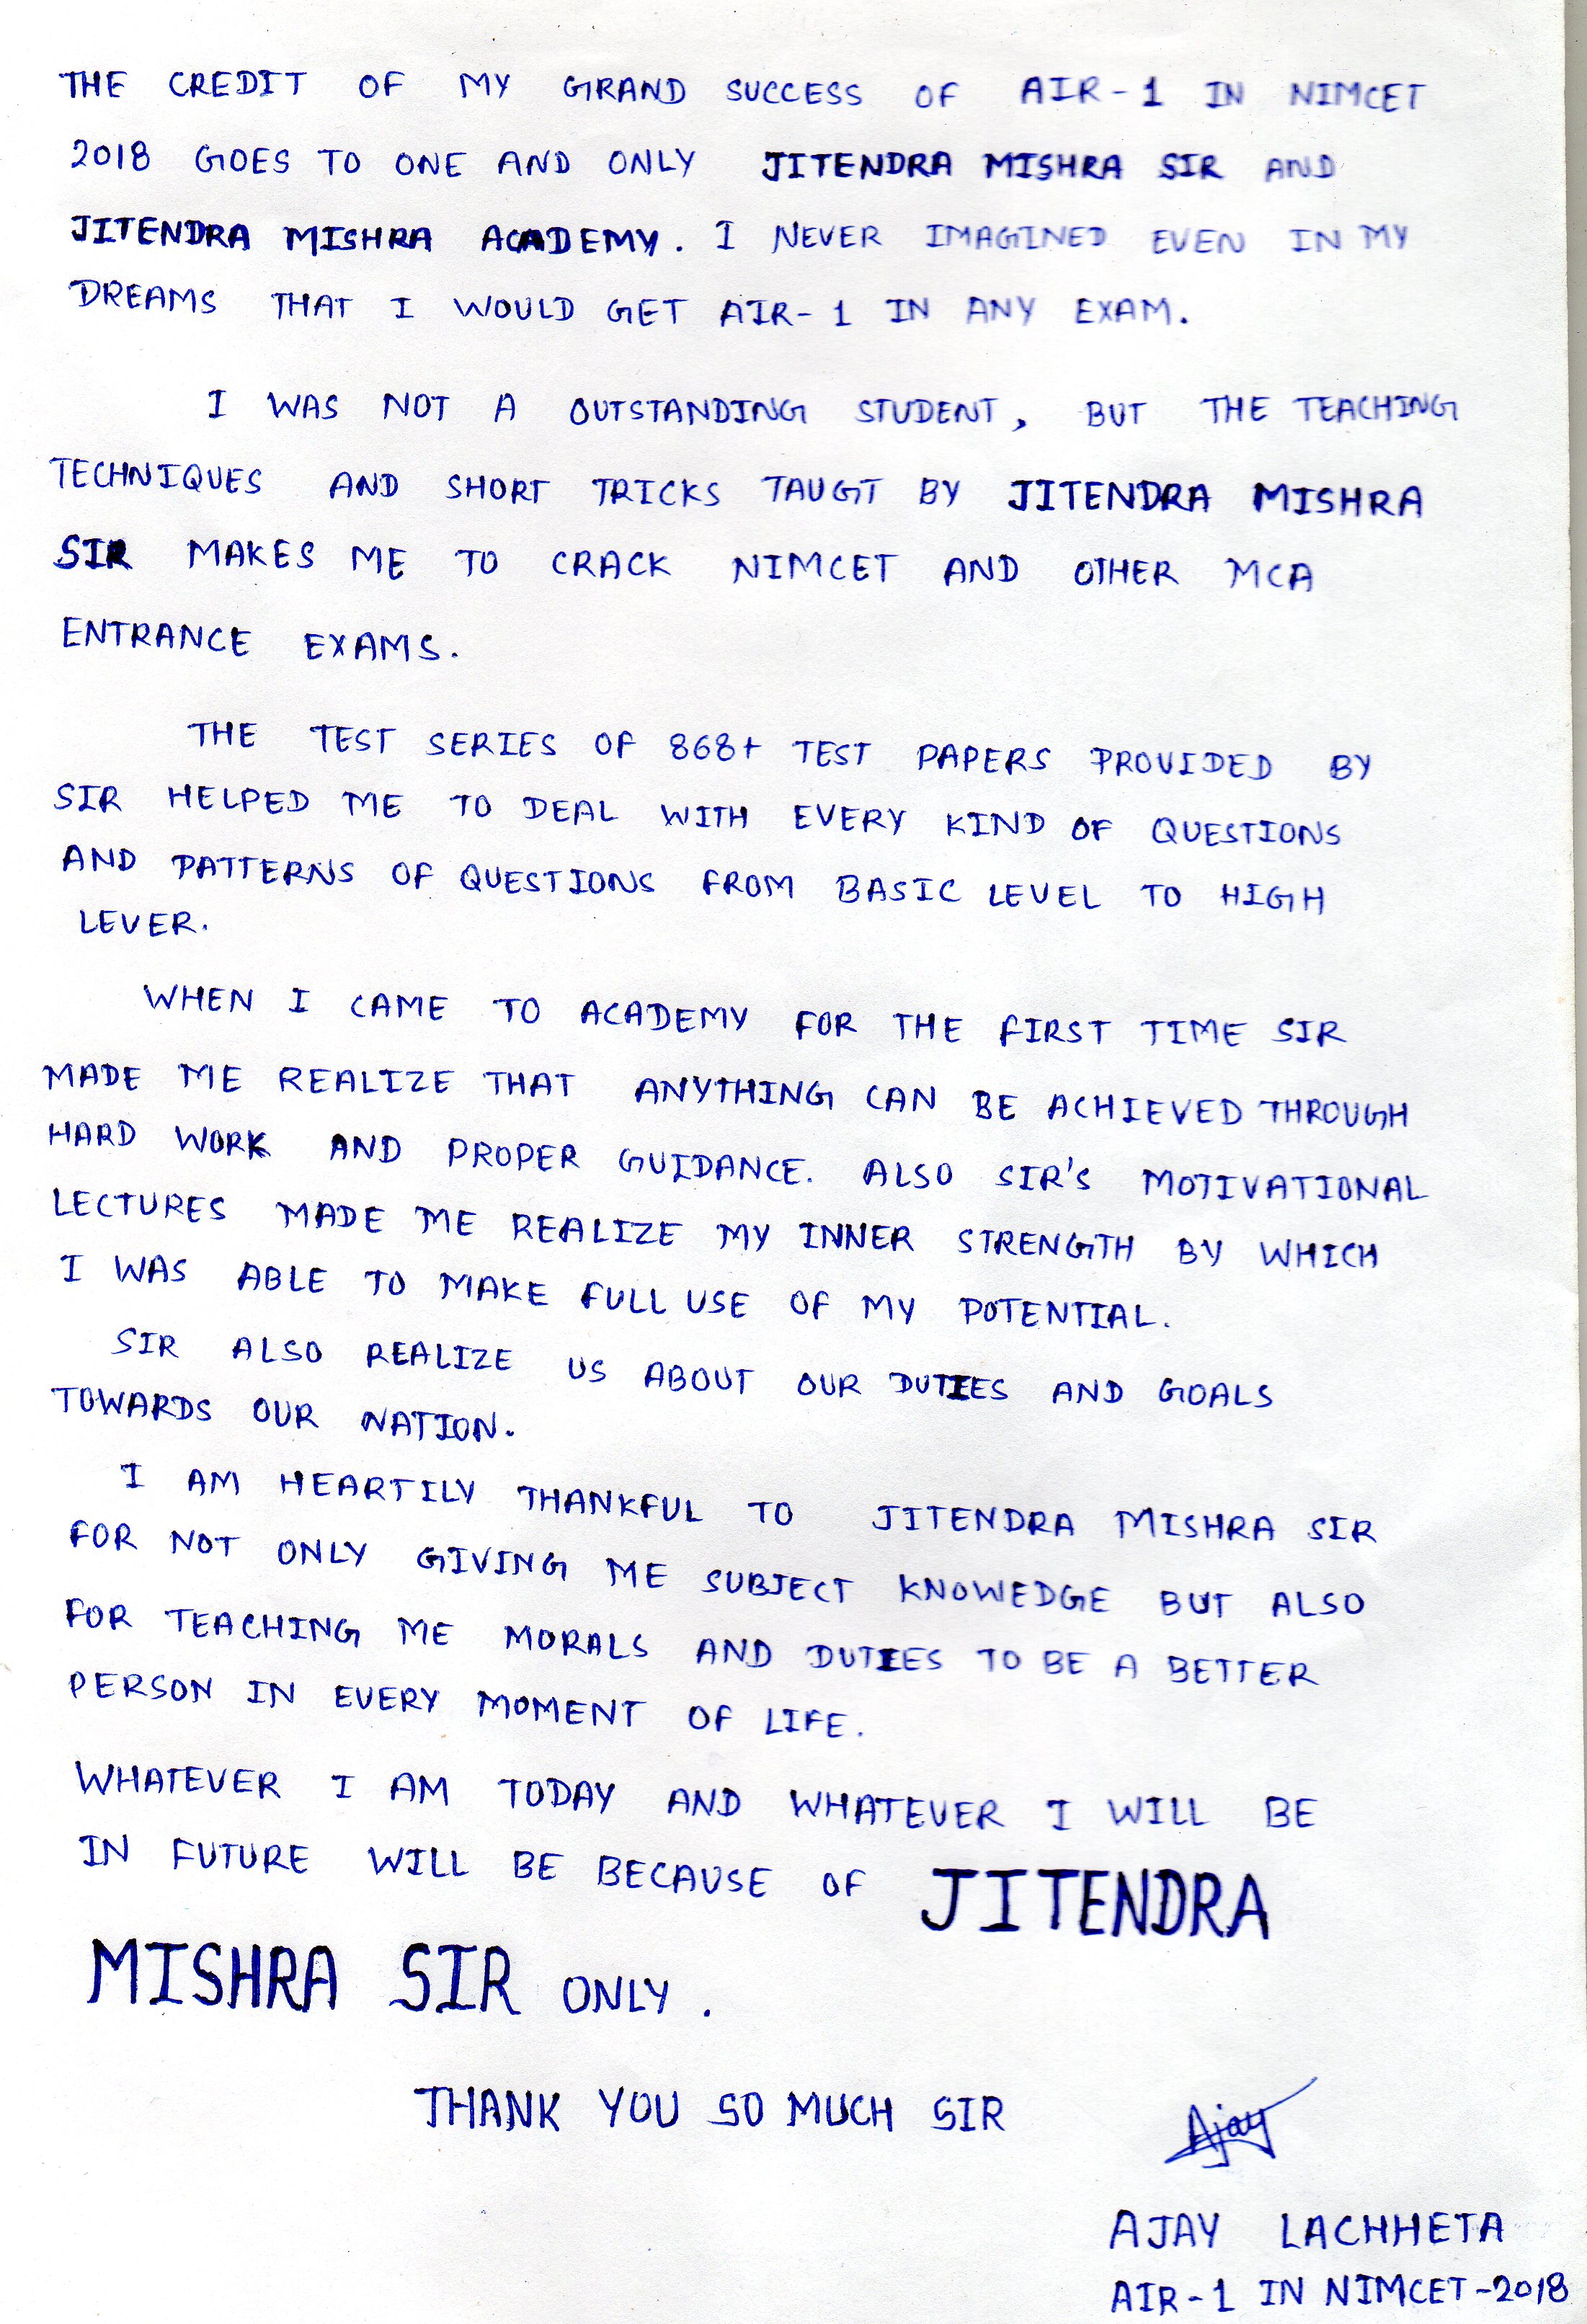 THE CREDIT OF MY GRAND SUCCESS OF AIR-1 IN NIMCET
2018 GOES TO ONE AND ONLY JITENDRA MISHRA SIR AND
JITENDRA MISHRA ACADEMY. I NEVER IMAGINED EVEN IN MY
DREAMS THAT I WOULD GET AIR-1 IN ANY EXAM.
I WAS NOT A OUTSTANDING STUDENT, BUT THE TEACHING
TECHNIQUES AND SHORT TRICKS TAUGT BY JITENDRA MISHRA
SIR MAKES ME TO CRACK NIMCET AND OTHER MCA
ENTRANCE EXAMS.
THE TEST SERIES OF 868+ TEST PAPERS PROVIDED BY
SIR HELPED ME TO DEAL WITH EVERY KIND OF QUESTIONS
AND PATTERNS OF QUESTIONS FROM BASIC LEVEL TO HIGH
LEVER.
WHEN I CAME TO ACADEMY FOR THE FIRST TIME SIR
MADE ME REALIZE THAT ANYTHING CAN BE ACHIEVED THROUGH
HARD WORK AND PROPER GUIDANCE. ALSO SIR'S MOTIVATIONAL
LECTURES MADE ME REALIZE MY INNER STRENGTH BY WHICH
I WAS ABLE TO MAKE FULL USE OF MY POTENTIAL.
SIR ALSO REALIZE US ABOUT OUR DUTIES AND GOALS
TOWARDS OUR NATION.
I AM HEARTILY THANKFUL TO JITENDRA MISHRA SIR
FOR NOT ONLY GIVING ME SUBJECT KNOWEDGE BUT ALSO
FOR TEACHING ME MORALS AND DUTIES TO BE A BETTER
PERSON IN EVERY MOMENT OF LIFE.
WHATEVER I AM TODAY AND WHATEVER I WILL BE
IN FUTURE WILL BE BECAUSE OF JITENDRA
MISHRA SIR ONLY.
THANK YOU SO MUCH SIR
Ajay
AJAY LACHHETA
AIR-1 IN NIMCET-2018